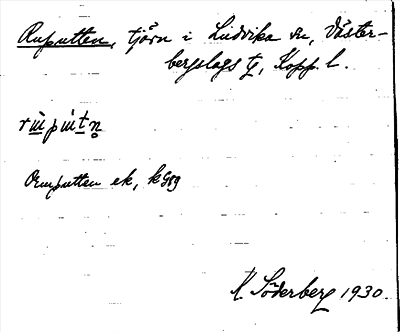 Ruputten, tjärn i Ludvika sn, Väster-
bergslags tg, Kopp. l.
Ormputten ek, kGsg
K Söderberg 1930.